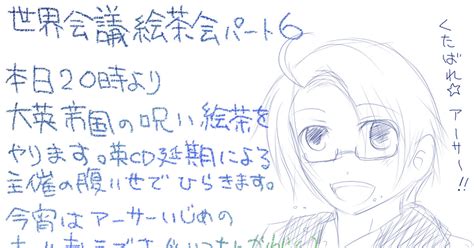 世界会議絵茶会パート6
本日20時より
大英帝国の呪い絵茶を
やります。英CD延期による
主催の腹いせでひらきます。
今宵はアーサーいじめの
くたばれ☆アーサー!!